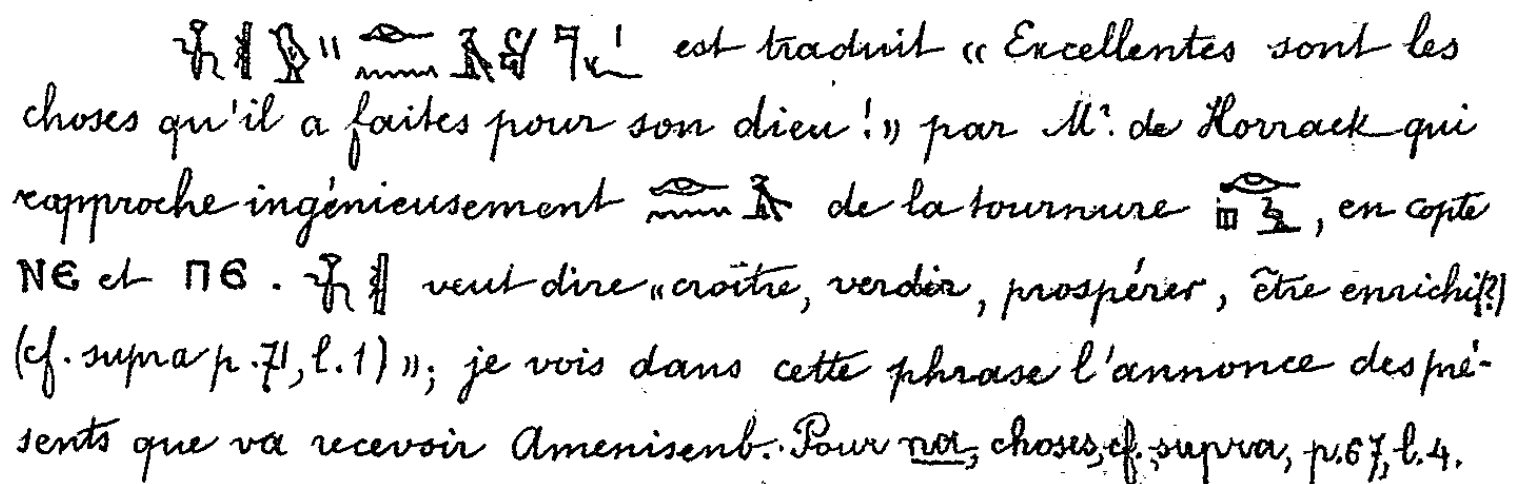 est traduit « Excellentes sont les
choses qu'il a faites pour son dieu ! » par Mr. de Horrack qui
rapproche ingénieusement de la tournure , en copte
ⲚⲈ et ⲠⲈ . veut dire « croître, verdir, prospérer, être enrichi(?)
(cf. supra p. 71, l. 1) » ; je vois dans cette phrase l'annonce des pré-
sents que va recevoir Amenisenb. Pour na, choses, cf. supra, p. 67, l. 4.